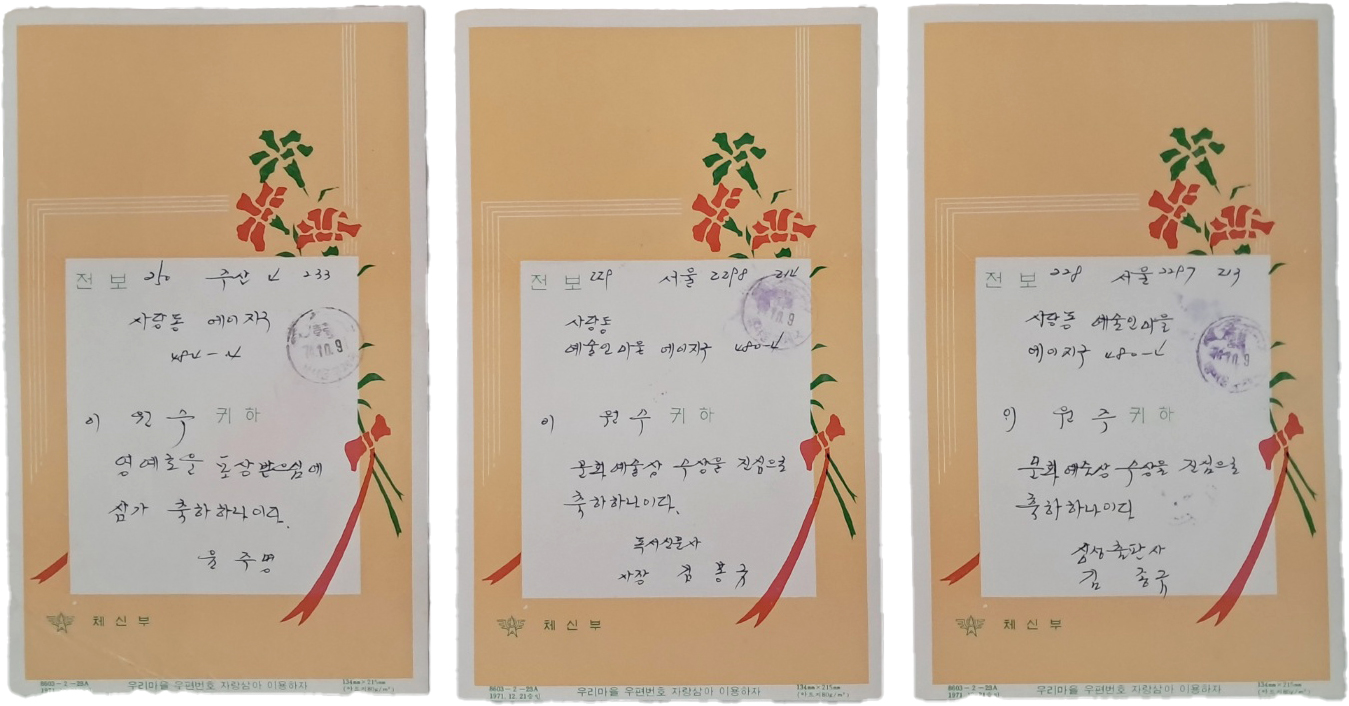 전보 210 주산 4 233
사랑동 에이지구
484-4
이 원수 귀하
영예호운 포상받으심에
삼가 축하하나이다.
윤주명
체신부
8603-2-23A
134mm×215mm
우리마을 우편번호 자랑삼아 이용하자
전보 229 서울 2298 214
사랑동
예술인마을 에이지구 480-4
이 원수 귀하
문화예술상 수상을 진심으로
축하하나이다.
독서신문사
사장 김홍국
체신부
8603-2-23A
1971. 12. 21 승인
134mm×215mm
우리마을 우편번호 자랑삼아 이용하자
전보 228 서울 2297 213
사랑동 예술인마을
에이지구 480-4
이 원주 귀하
문화예술상 수상을 진심으로
축하하나이다
심상출판사
김종규
체신부
8603-2-23A
134mm×215mm
우리마을 우편번호 자랑삼아 이용하자